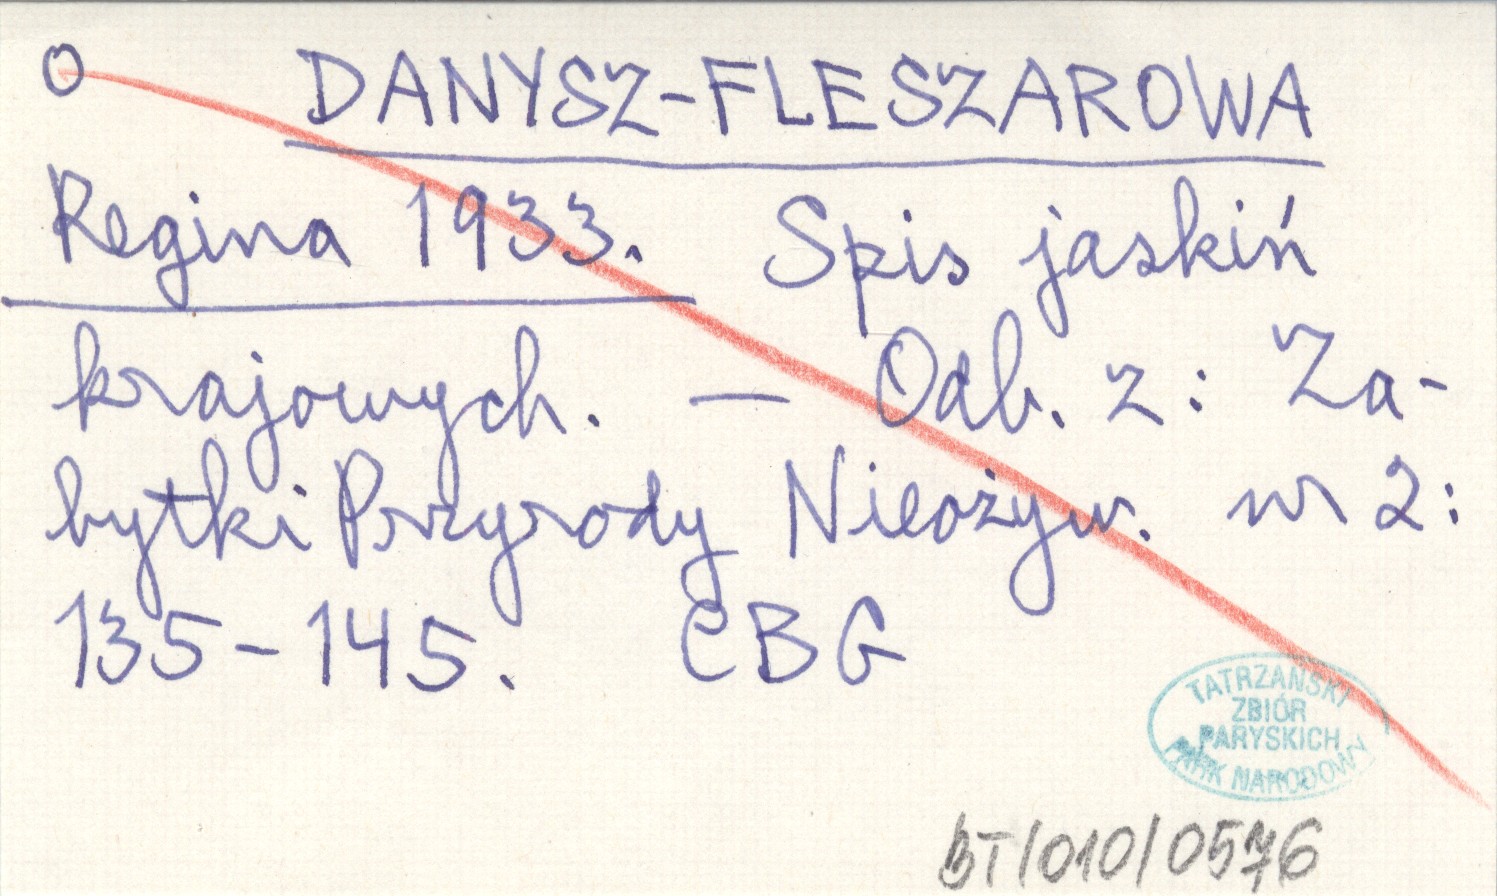 O DANYSZ-FLESZAROWA
Regina 1933. Spis jaskiń
krajowych. — Odb. z: Za-
bytki Przyrody Nieożyw. nr 2:
135-145. CBG
TATRZAŃSKI
ZBIÓR
PARYSKICH
PARK NARODOWY
BT/010/0576